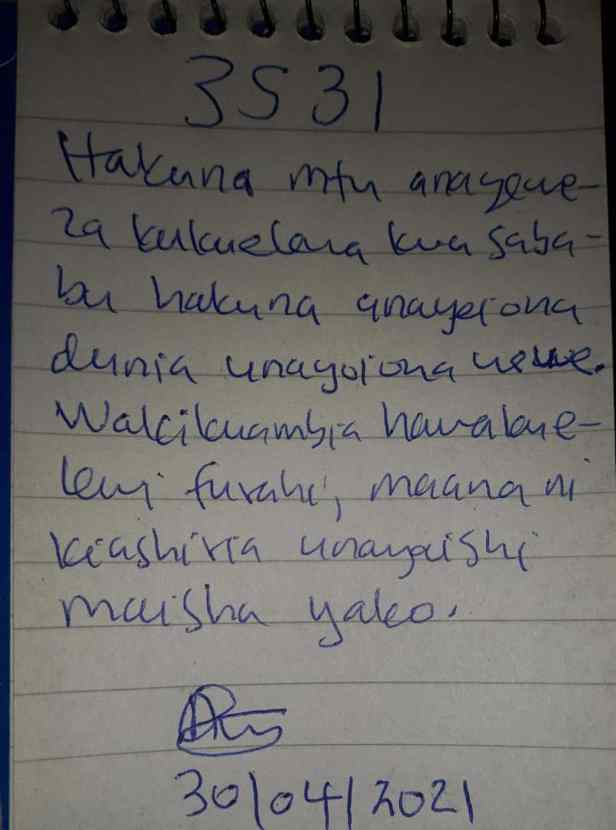 3531
Hakuna mtu anayewe-
za kukuelewa kwa saba-
bu hakuna anayeiona
dunia unayoiona wewe.
Wakikuambia hawakue-
lewi furahi, maana ni
kiashiria unayaishi
maisha yako.
30/04/2021